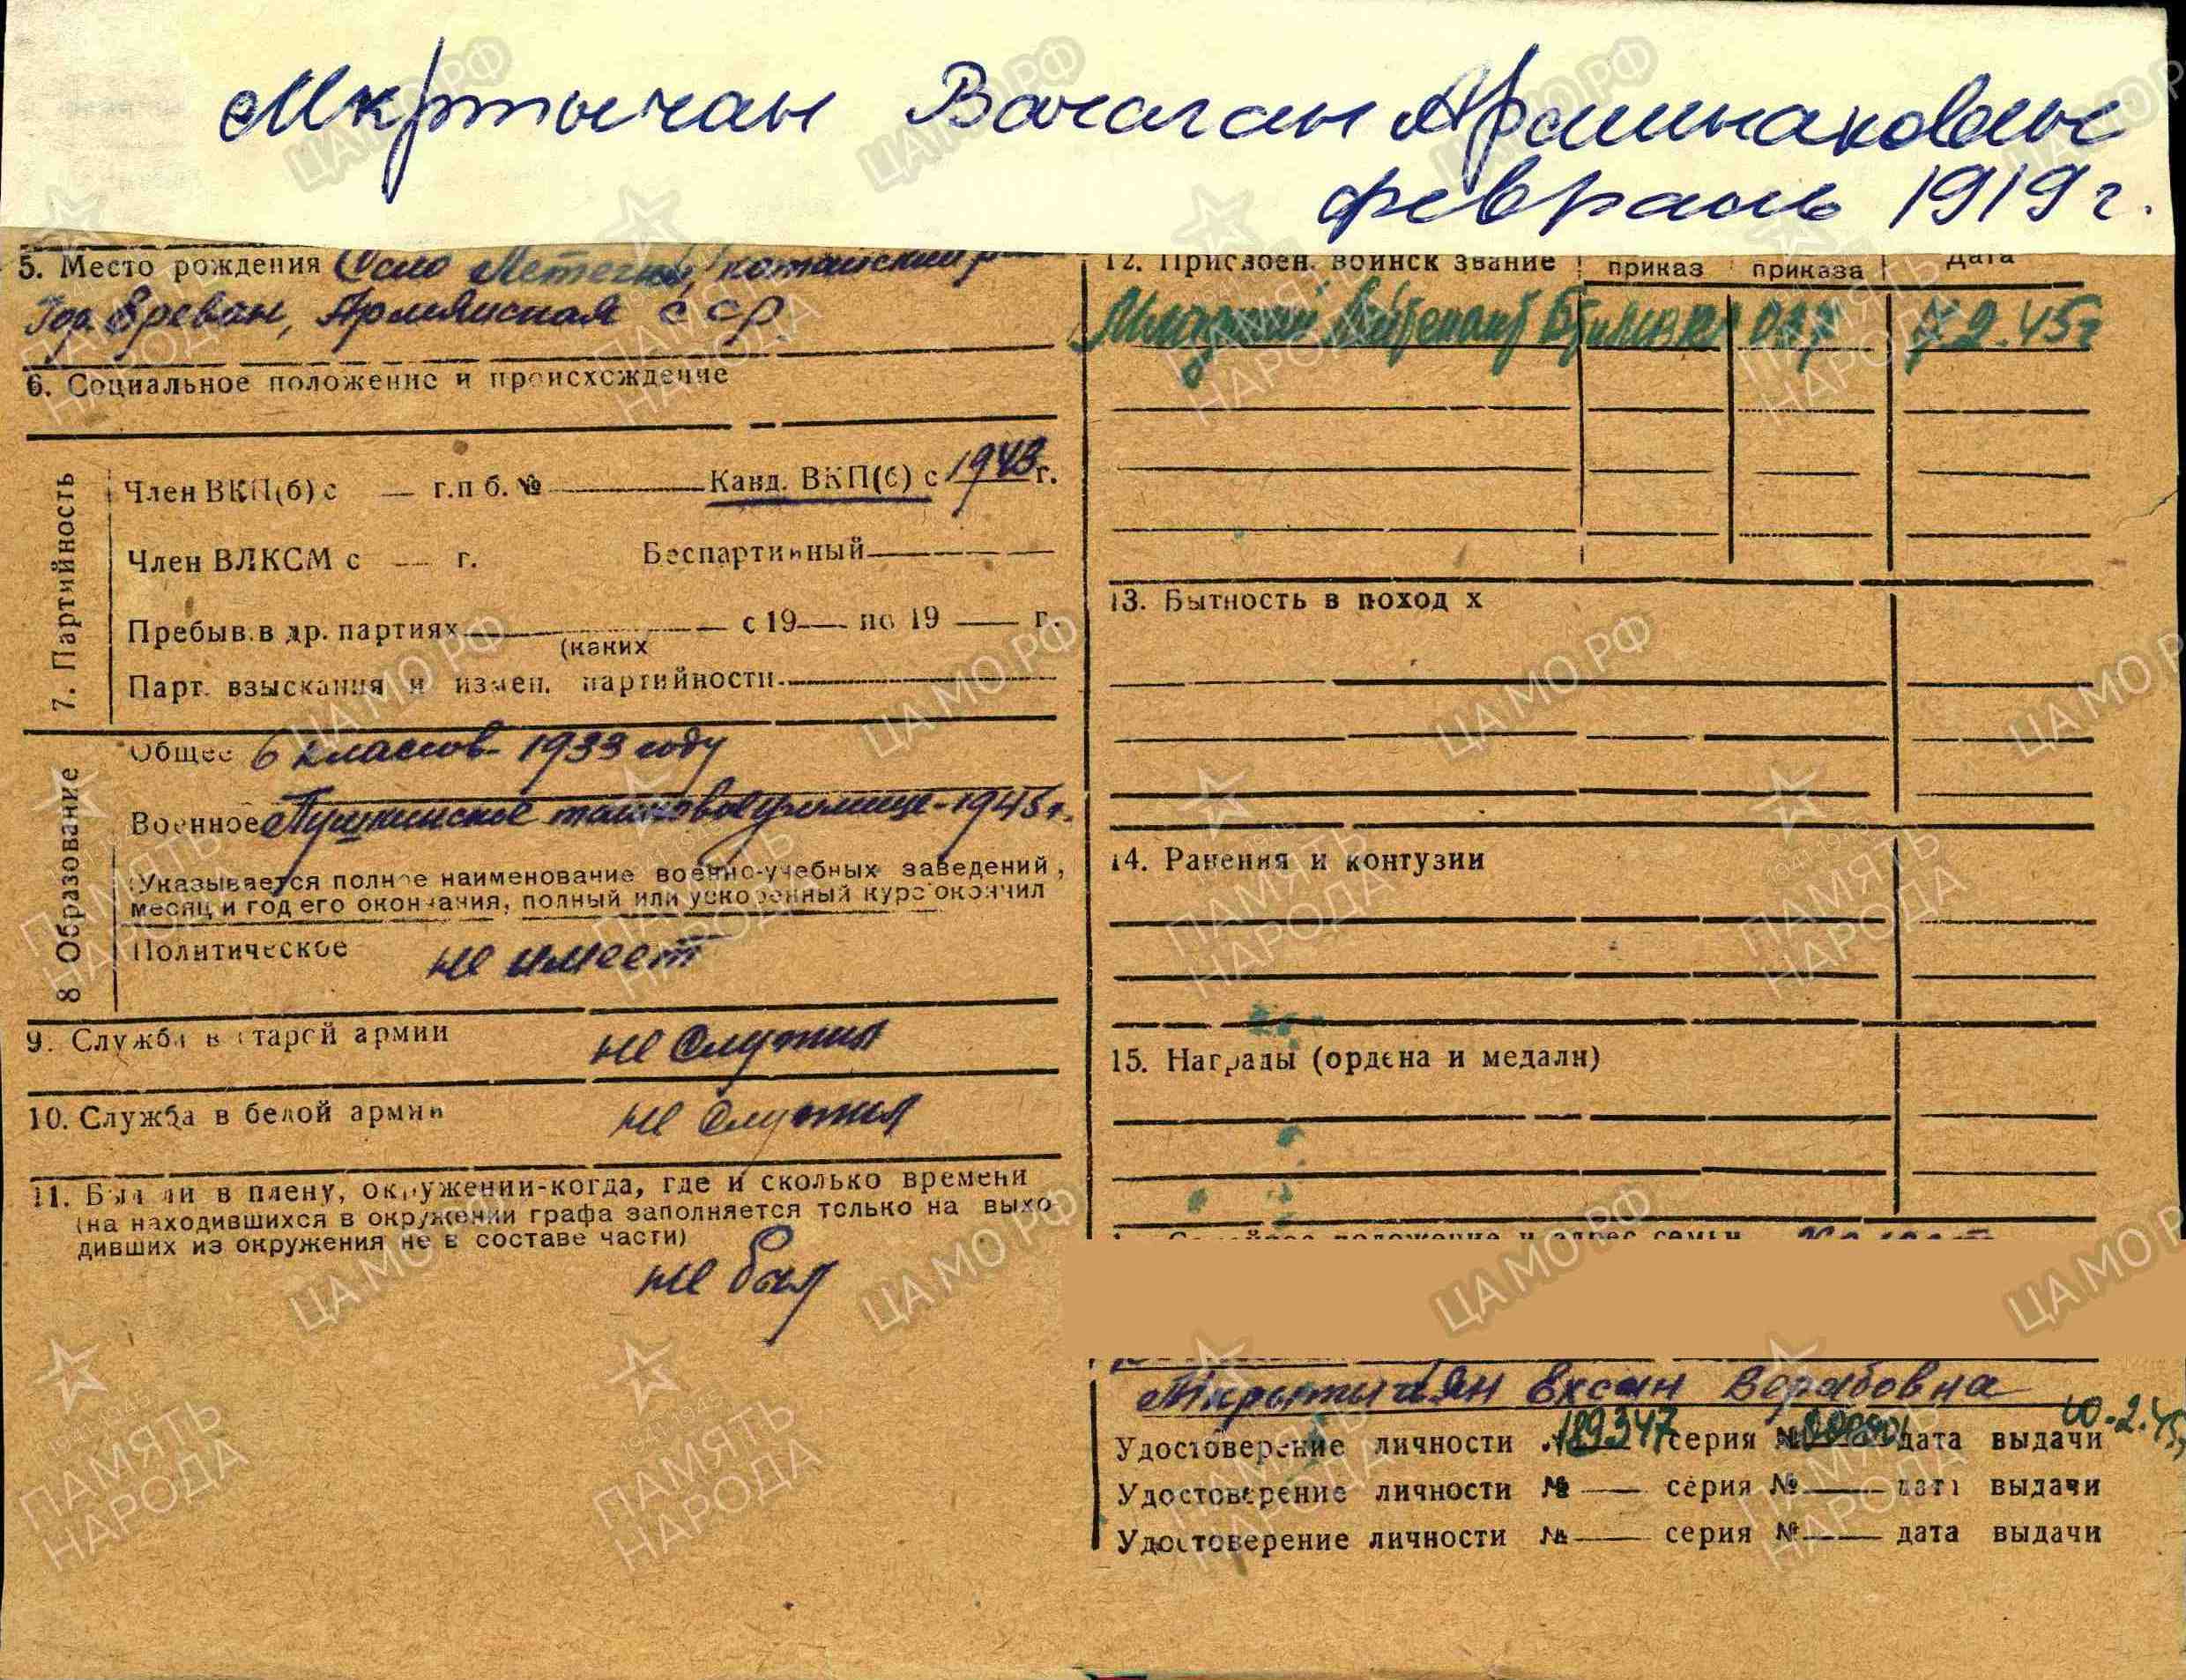 Мкртычан Вачаган Аршинакович
февраль 1919 г.
5. Место рождения Село котайский р
Гор. Ереван, Армянская ССР
6. Социальное положение и происхождение
7. Партийность
Член ВКП(б) с — г. п б. № Канд. ВКП(б) с 1943 г.
Член ВЛКСМ с — г. Беспартийный
Пребыв. в др. партиях с 19 — по 19 — г.
(каких
Парт. взыскания и измен. партийности
8 Образование
Общее 6 классов 1933 году
Военное Пушкинское танковое училище - 1945 г.
Указывается полное наименование военно-учебных заведений,
месяц и год его окончания, полный или ускоренный курс окончил
Политическое не имеет
9. Служба в старой армии не служил
10. Служба в белой армии не служил
11. Был ли в плену, окружении-когда, где и сколько времени
(на находившихся в окружении графа заполняется только на выхо-
дивших из окружения не в составе части)
не был
12. Присвоен. воинск звание приказ приказа Дата
Младший Лейтенант 2.45г
13. Бытность в поход х
14. Ранения и контузии
15. Награды (ордена и медали)
Семейное положение и адрес семьи
Мкрытичян Ехсан
Удостоверение личности № 189347 серия № дата выдачи 10.2.45
Удостоверение личности № — серия № — дата выдачи
Удостоверение личности № — серия № — дата выдачи
ЦАМО РФ
ПАМЯТЬ НАРОДА